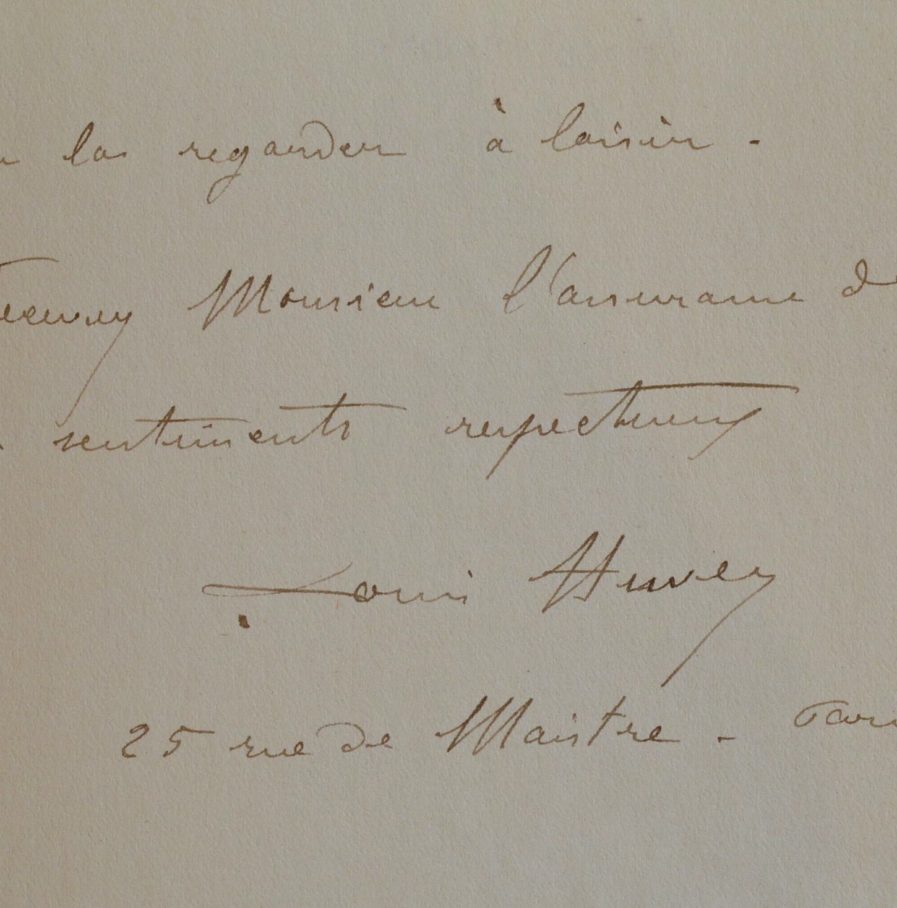 la regarder à loisir.
Recevez Monsieur l'assurance de
sentiments respectueux
Louis Huvey
25 rue de Maistre - Paris